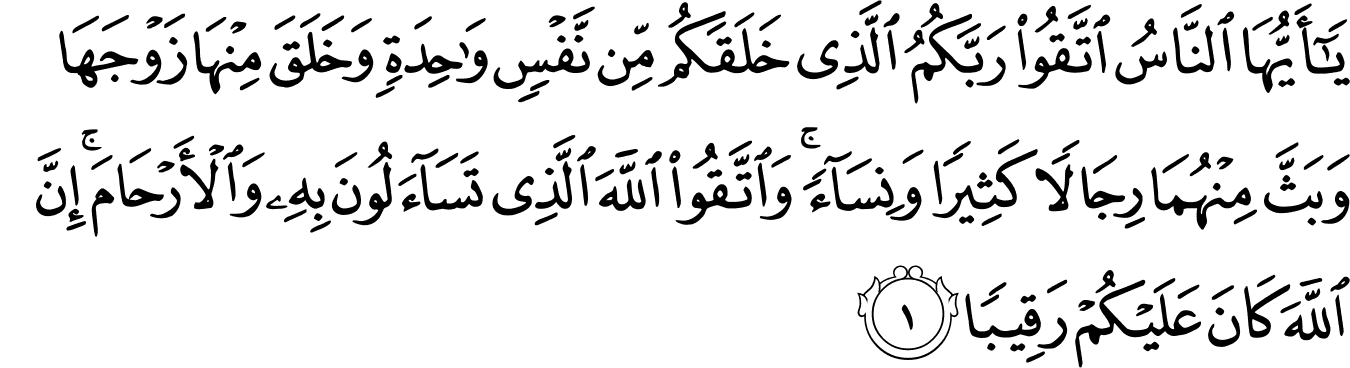 يَـٰٓأَيُّهَا ٱلنَّاسُ ٱتَّقُوا۟ رَبَّكُمُ ٱلَّذِى خَلَقَكُم مِّن نَّفْسٍ وَٰحِدَةٍ وَخَلَقَ مِنْهَا زَوْجَهَا
وَبَثَّ مِنْهُمَا رِجَالًا كَثِيرًا وَنِسَآءً ۚ وَٱتَّقُوا۟ ٱللَّهَ ٱلَّذِى تَسَآءَلُونَ بِهِۦ وَٱلْأَرْحَامَ ۚ إِنَّ
ٱللَّهَ كَانَ عَلَيْكُمْ رَقِيبًا ١